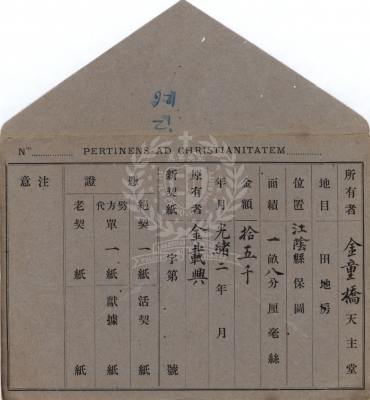 Nº
PERTINENS AD CHRISTIANITATEM
所有者 金童橋 天主堂
地目 田地房
位置 江陰縣 保圖
面積 一畝八分厘毫絲
金額 拾五千
年月 光緒二年 月
原有者 金載興
新契紙 字第 號
證
絕契一紙 活契 紙
代方單一紙 獻據 紙
老契 紙 紙
注意